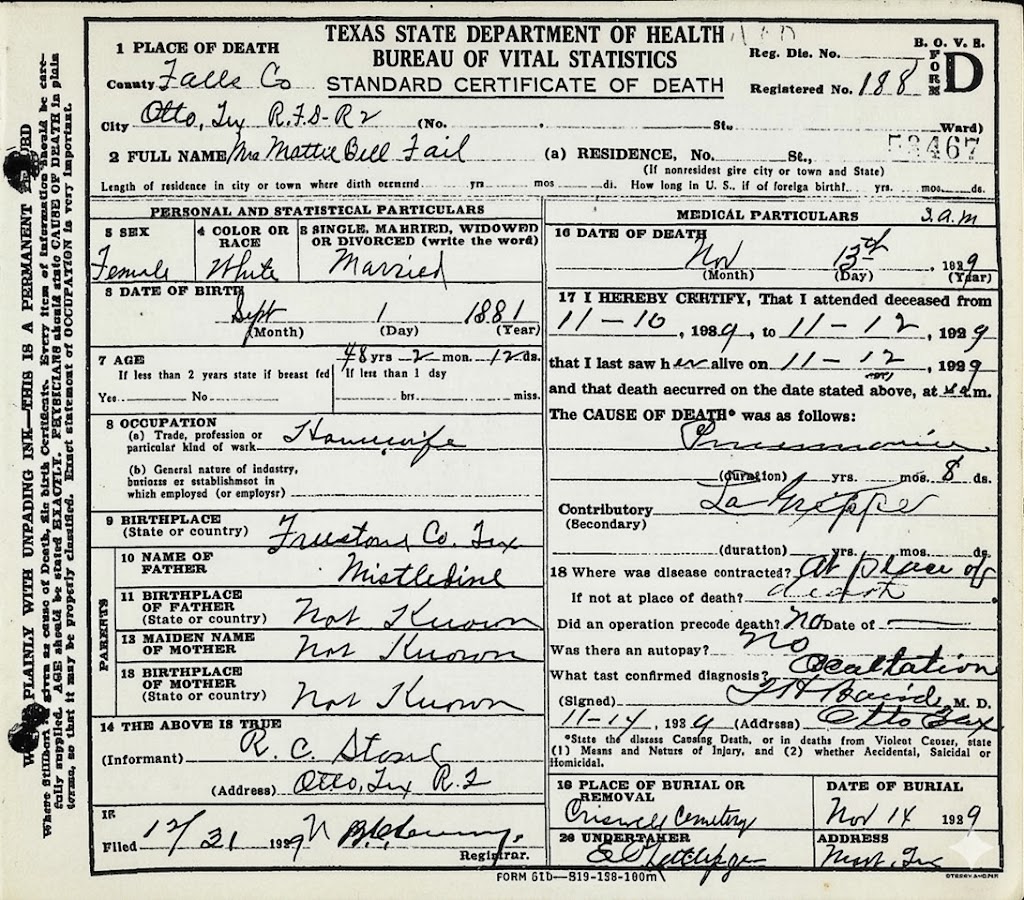 TEXAS STATE DEPARTMENT OF HEALTH
BUREAU OF VITAL STATISTICS
STANDARD CERTIFICATE OF DEATH
Reg. Dis. No.
Registered No. 188
B. O. V. S.
FORM D
1 PLACE OF DEATH
County Falls Co
City Otto, Tex R.F.D-R2 (No. St. Ward)
2 FULL NAME Mrs Mattie Bell Fail (a) RESIDENCE, No. St., 53467
(If nonresident give city or town and State)
Length of residence in city or town where disth occrnrd yrs mos di. How long in U. S., if of foreiga birth? yrs. mos. ds.
PERSONAL AND STATISTICAL PARTICULARS
5 SEX Female
4 COLOR OR RACE White
8 SINGLE, MAHRIED, WIDOWED OR DIVORCED (write the word) Married
8 DATE OF BIRTH
Sept 1 1881
(Month) (Day) (Year)
7 AGE 48 yrs 2 mon. 12 ds.
If less than 2 years state if breast fed If less than 1 day
Yes No hrs miss.
8 OCCUPATION
(a) Trade, profession or particular kind of work Housewife
(b) General nature of industry,
which employed (or employsr)
9 BIRTHPLACE
(State or country) Freestone Co. Tex
PARENTS
10 NAME OF FATHER Mistledine
11 BIRTHPLACE OF FATHER
(State or country) Not Known
13 MAIDEN NAME OF MOTHER Not Known
18 BIRTHPLACE OF MOTHER
(State or country) Not Known
14 THE ABOVE IS TRUE
(Informant) R. C. Stone
(Address) Otto, Tex R.2
Filed 12/31 1929
Registrar.
MEDICAL PARTICULARS 3. a.m
16 DATE OF DEATH
Nov 13th, 1929
(Month) (Day) (Year)
17 I HEREBY CERTIFY, That I attended deceased from
11-10, 1929, to 11-12, 1929
that I last saw her alive on 11-12, 1929
and that death aecurred on the date stated above, at m.
The CAUSE OF DEATH* was as follows:
Pneumonia
(duration) yrs. mos. 8 ds.
Contributory La Grippe
(Secondary)
(duration) yrs. mos. ds.
18 Where was disease contracted? At place of
If not at place of death? death
Did an operation precode death? No Date of
Was there an autopay? No
What tast confirmed diagnosis?
(Signed) M. D.
11-14, 1929 (Address) Otto Tex
*State the disease Causing Death, or in deaths from Violent Ceoser, state
(1) Means and Neture of Injury, and (2) whether Accidental, Saicidal or
Homicidal.
19 PLACE OF BURIAL OR REMOVAL
Criswell Cemetery
DATE OF BURIAL
Nov 14 1929
20 UNDERTAKER
ADDRESS
Mart, Tex
FORM 61D—819-138-100m
PLAINLY WITH UNFADING INK—THIS IS A PERMANENT RECORD